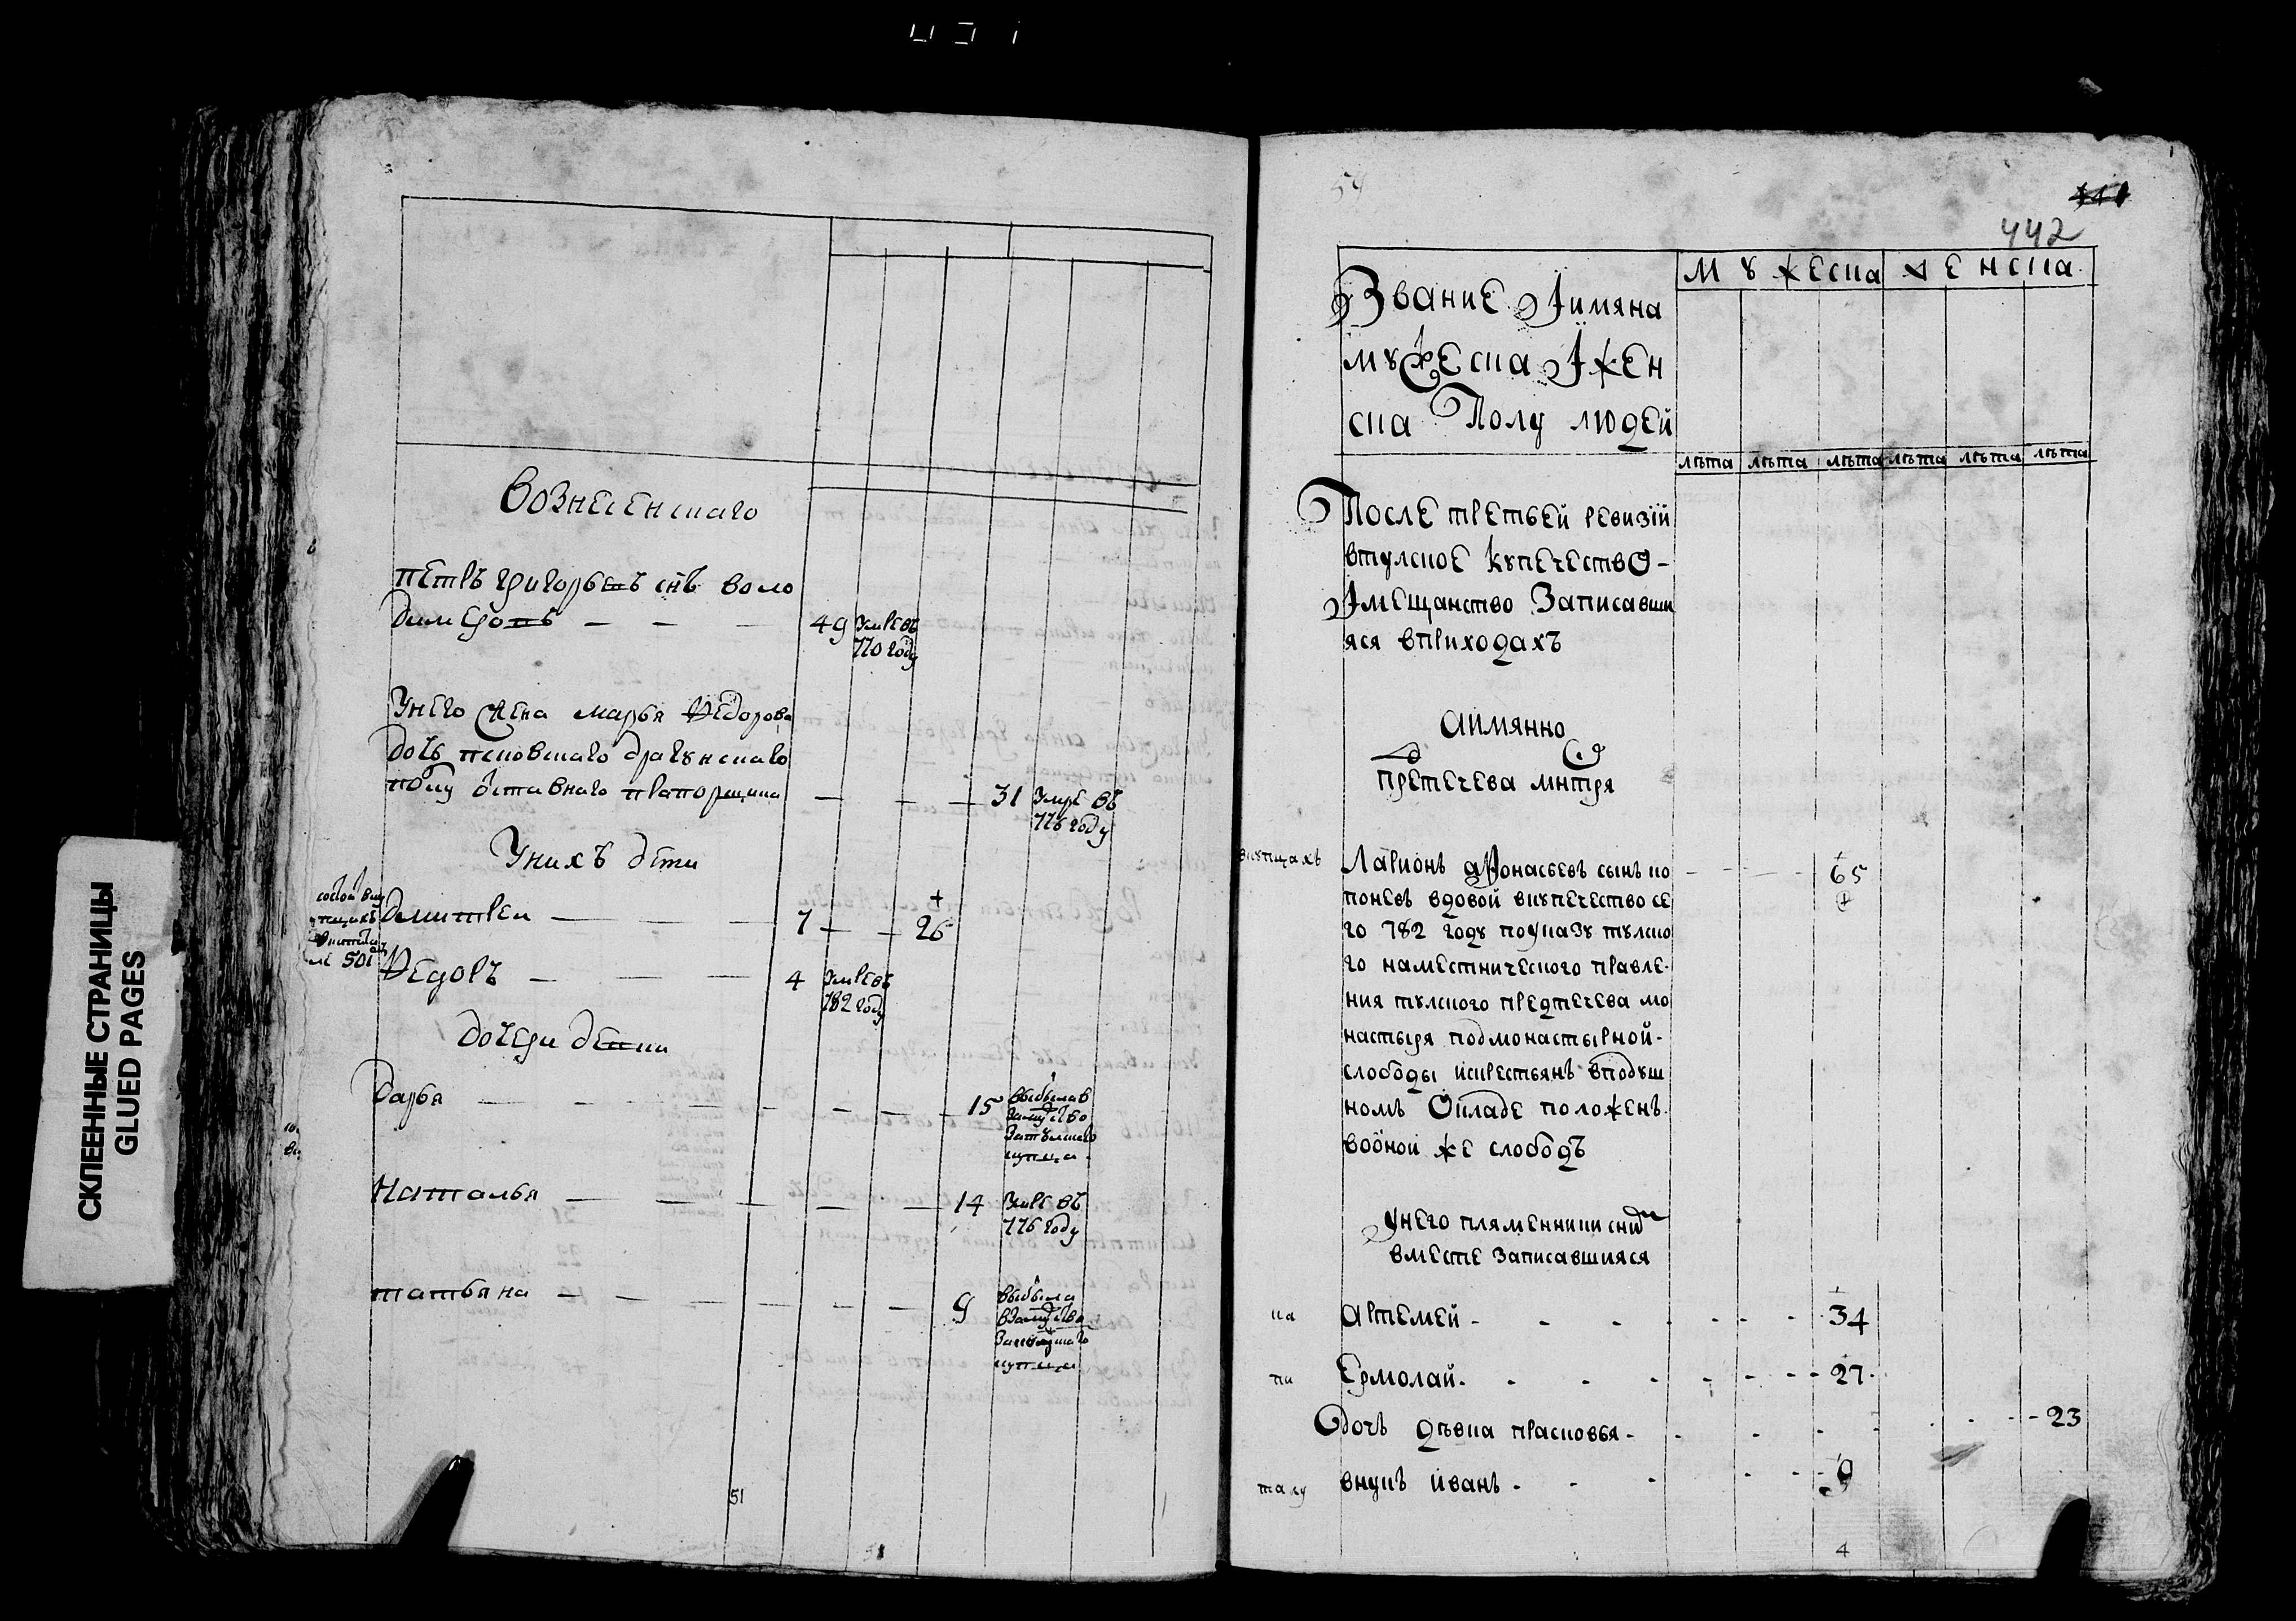 СКЛЕЕННЫЕ СТРАНИЦЫ
GLUED PAGES
Вознесенскаго
петръ григорьевъ снъ воло
димеровъ — — — 49 Умре въ
770 году
Унего жена марья Федорова
дочь псковскаго драгунскаго
полку отставнаго прапорщика — — — 31 Умре въ
776 году
Унихъ дети
Дмитреи — — — 7 — — 26
Федоръ — — — 4 Умре въ
782 году
дочери девки
Дарья — — — 15 выбыла в
замужство
затулскаго
купца
Наталья — — — 14 Умре въ
776 году
татьяна — — — 9 выбыла
взамужство
купца
51
54
442
Звание Iимяна
мужеска Iжен
ска Полу людей
мужеска женска
лѣта лѣта лѣта лѣта лѣта лѣта
После третьей ревизiй
втулское купечество -
Iмещанство Записавши
яся вприходахъ
аимянно
предтечева мнтря
вкупцахъ Ларионъ афонасьевъ сынъ по - - - 65
поневъ вдовой вкупечество се
го 782 году поуказу тулско
го наместническаго правле-
ния тулского предтечева мо
настыря подмонастырной-
слободы искрестьянъ вподуш
номъ Окладе положенъ-
воδной же слободѣ
унего пляменники сним
вместе записавшияся
Артемей - - - 34
Ермолай - - - 27
дочь дѣвка прасковья - - - 23
внукъ иванъ - - - 9
4